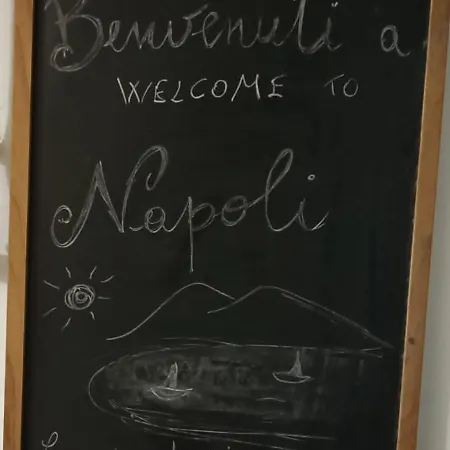 Benvenuti a
WELCOME TO
Napoli